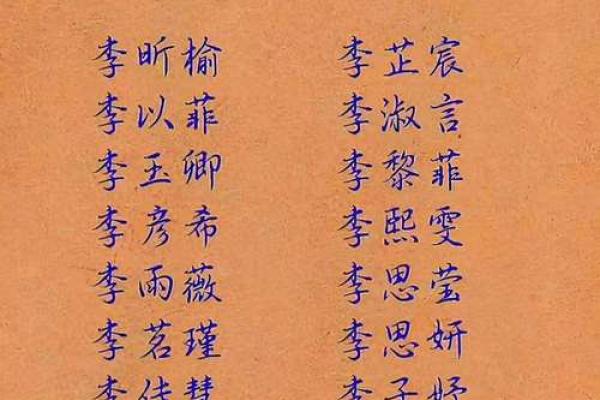 李昕榆 李芷宸
李以菲 李淑言
李玉卿 李黎菲
李彦希 李熙雯
李雨薇 李思莹
李茗瑾 李思妍
李佳慧 李子妤